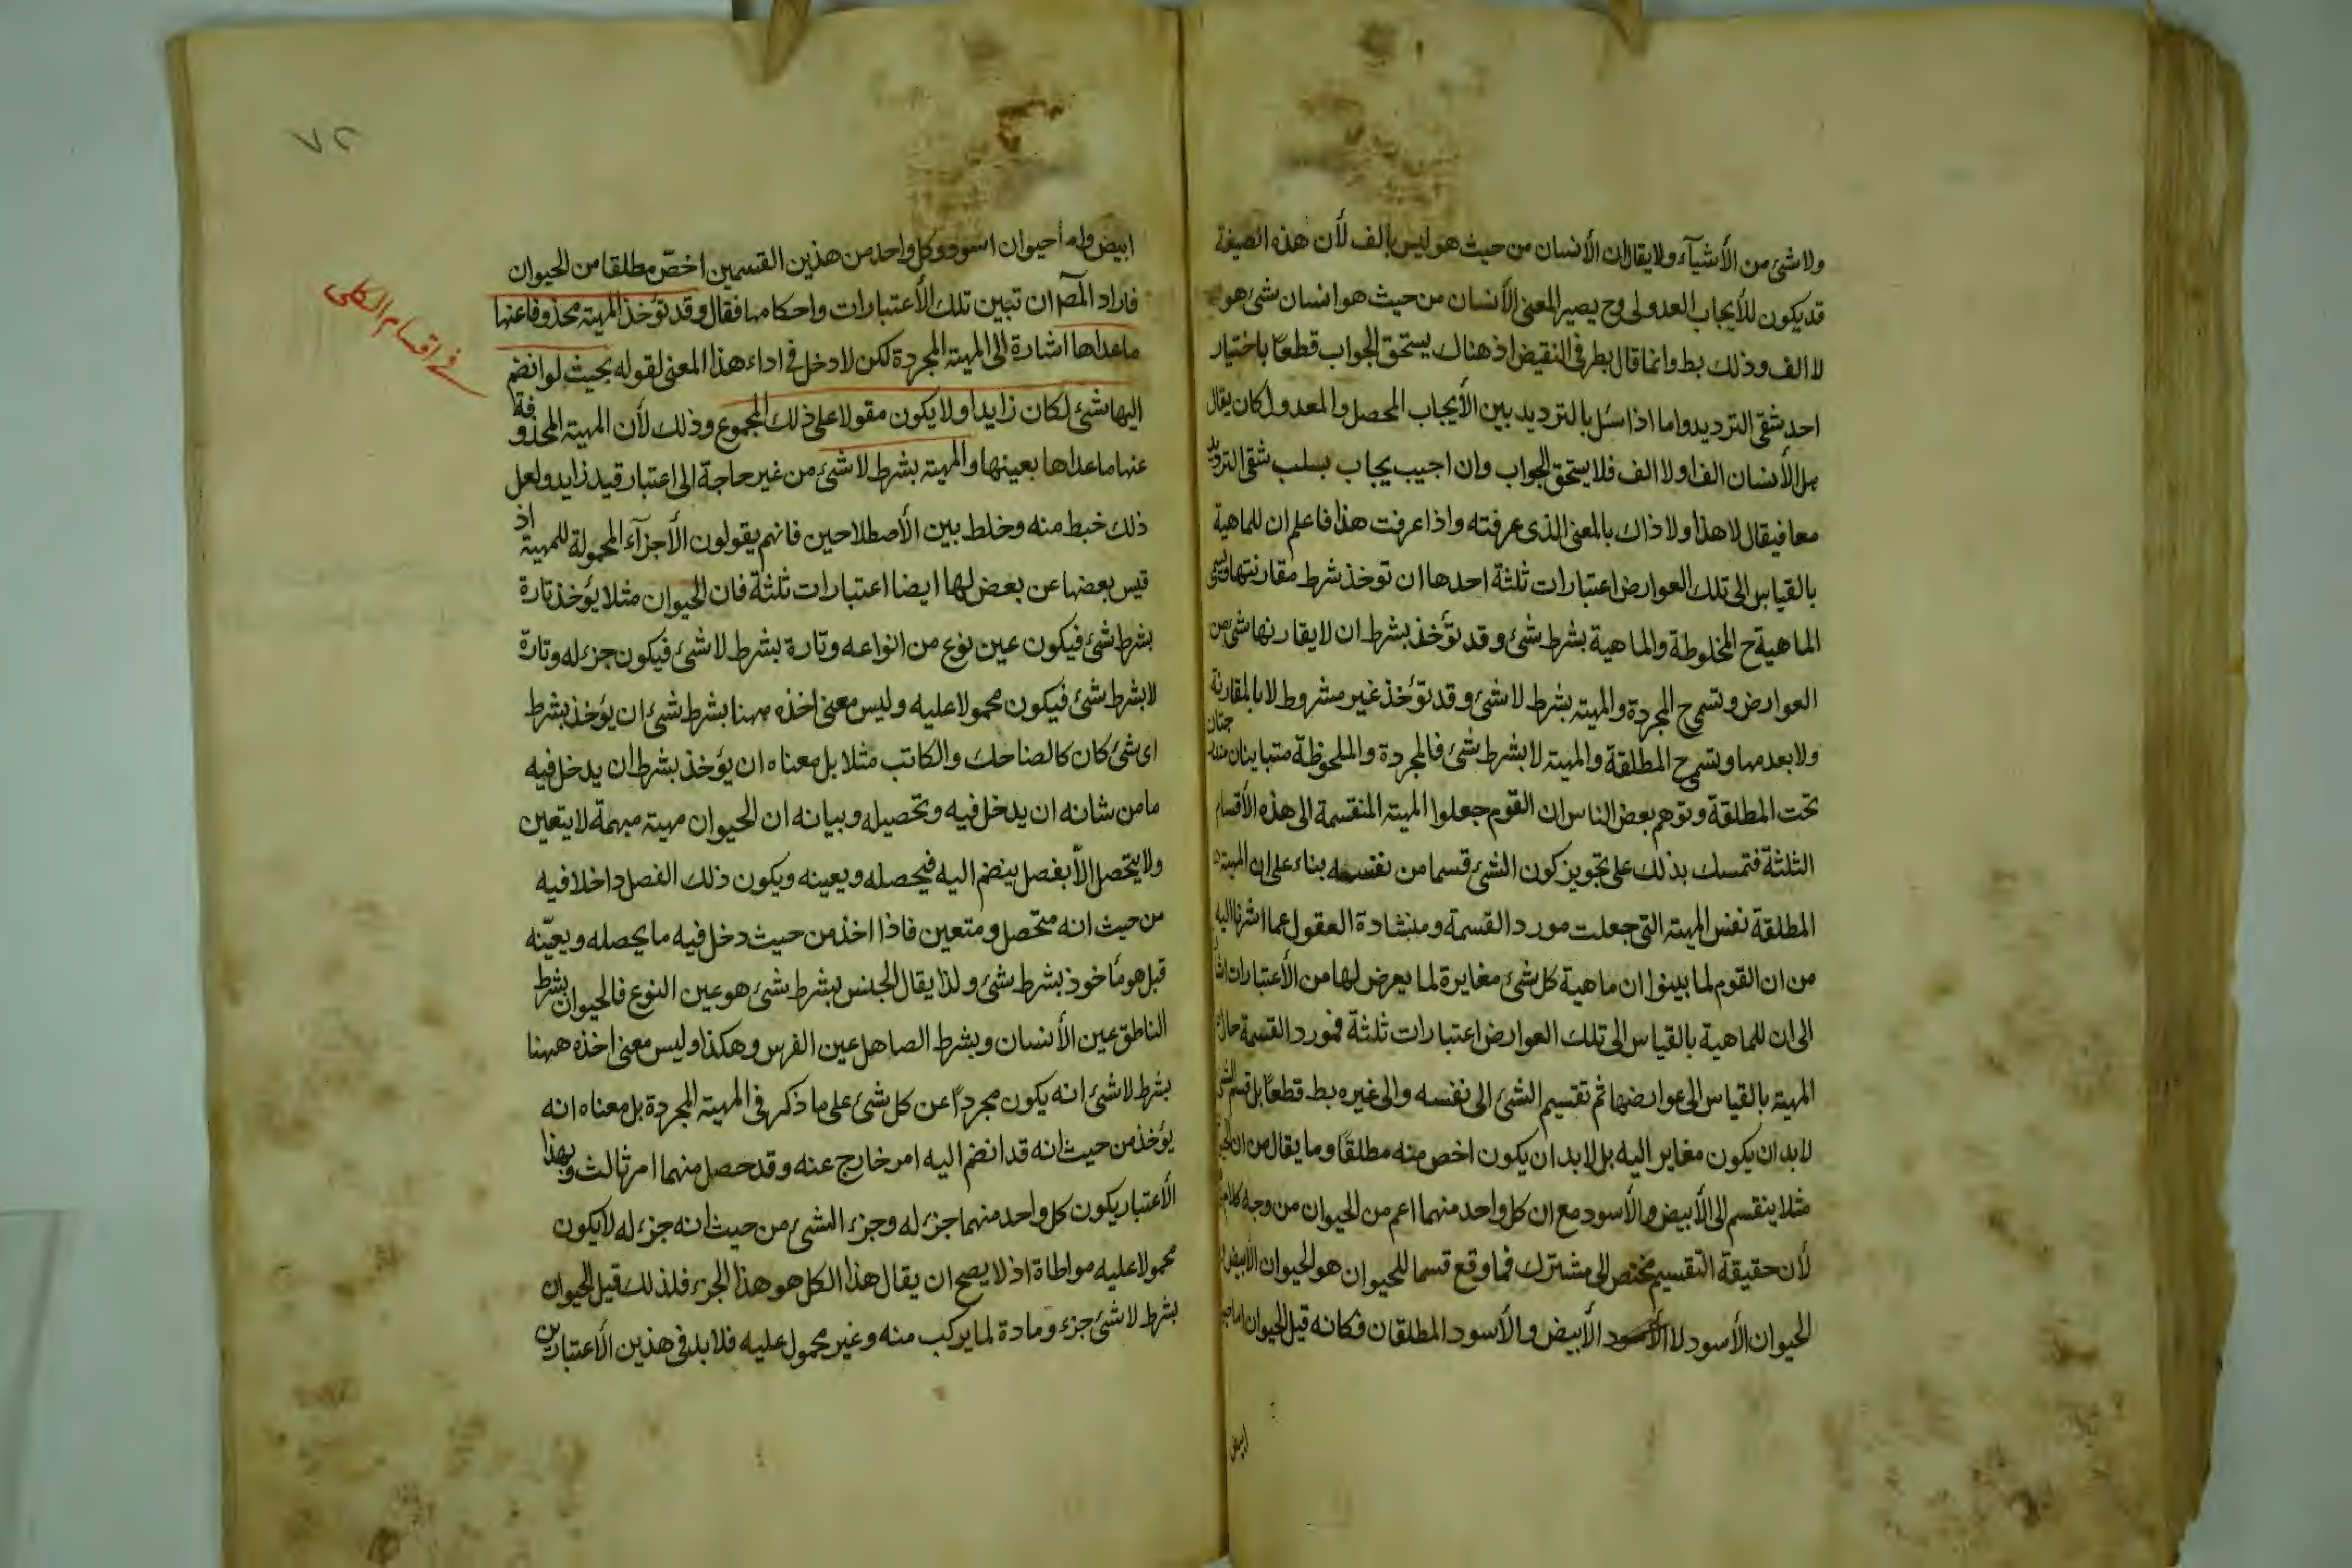 ولا شئ من الأشيآء ولا يقال ان الأنسان من حيث هو ليس بالف لأن هذه الصيغة
قد يكون للأيجاب العدولى وح يصير المعنى الأنسان من حيث هو انسان شئ هو
لا الف وذلك بط وانما قال بطرفى النقيض اذ هناك يستحق الجواب قطعا باختيار
احد شقى الترديد واما اذا سئل بالترديد بين الأيجاب المحصل والمعدول كان يقال
هل الأنسان الف او لا الف فلا يستحق الجواب وان اجيب يجاب بسلب شقى الترديد
معا فيقال لا هذا ولا ذاك بالمعنى الذى عرفته واذا عرفت هذا فاعلم ان للماهية
بالقياس الى تلك العوارض اعتبارات ثلثة احدها ان توخذ شرط مقارنتها وتسمى
الماهية ح المخلوطة والماهية بشرط شئ وقد تؤخذ بشرط ان لا يقارنها شئ من
العوارض وتسمى ح المجردة والمهية بشرط لا شئ وقد تؤخذ غير مشروط لا بالمقارنة
ولا بعدمها وتسمى ح المطلقة والمهية لا بشرط شئ فالمجردة والملحوظة متباينان مندرجتان
تحت المطلقة وتوهم بعض الناس ان القوم جعلوا المهية المنقسمة الى هذه الأقسام
الثلثة فتمسك بذلك على تجويز كون الشئ قسما من نفسه بناء على ان المهية
المطلقة نفس المهية التى جعلت مورد القسمة ومنشاءه العقول عما اشرنا اليه
من ان القوم لما بينوا ان ماهية كل شئ مغايرة لما يعرض لها من الأعتبارات
الى ان للماهية بالقياس الى تلك العوارض اعتبارات ثلثة فمورد القسمة حال
المهية بالقياس الى عوارضها ثم تقسيم الشئ الى نفسه والى غيره بط قطعا بل قسم الشئ
لا بد ان يكون مغاير اليه بل لا بد ان يكون اخص منه مطلقا وما يقال من ان
مثلا ينقسم الى الأبيض والأسود مع ان كل واحد منهما اعم من الحيوان من وجه
لأن حقيقة التقسيم مختص الى مشترك فما وقع قسما للحيوان هو الحيوان الأبيض
الحيوان الأسود لا الأبيض والأسود المطلقان فكانه قيل الحيوان اما
ابيض
٧٢
ابيض واما حيوان اسود وكل واحد من هذين القسمين اخص مطلقا من الحيوان
فاراد المصـ ان تبين تلك الأعتبارات واحكامها فقال وقد تؤخذ المهية محذوفا عنها
ما عداها اشارة الى المهية المجردة لكن لا دخل فى اداء هذا المعنى لقوله بحيث لو انضم
اليها شئ لكان زايدا ولا يكون مقولا على ذلك المجموع وذلك لأن المهية المحذوفة
عنها ما عداها بعينها والمهية بشرط لا شئ من غير حاجة الى اعتبار قيد زايد ولعل
ذلك خبط منه وخلط بين الأصطلاحين فانهم يقولون الأجزآء المحمولة للمهية اذ
قيس بعضها عن بعض لها ايضا اعتبارات ثلثة فان الحيوان مثلا يؤخذ تارة
بشرط شئ فيكون عين نوع من انواعه وتارة بشرط لا شئ فيكون جزء له وتارة
لا بشرط شئ فيكون محمولا عليه وليس معنى اخذه ههنا بشرط شئ ان يؤخذ بشرط
اى شئ كان كالضاحك والكاتب مثلا بل معناه ان يؤخذ بشرط ان يدخل فيه
ما من شانه ان يدخل فيه وتحصيله وبيانه ان الحيوان مهية مبهمة لا يتعين
ولا يتحصل الأ بفصل ينضم اليه فيحصله ويعينه ويكون ذلك الفصل داخلا فيه
من حيث انه متحصل ومتعين فاذا اخذ من حيث دخل فيه ما يحصله ويعينه
قبل هو مأخوذ بشرط شئ ولذا يقال الجنس بشرط شئ هو عين النوع فالحيوان بشرط
الناطق عين الأنسان وبشرط الصاهل عين الفرس وهكذا وليس معنى اخذه ههنا
بشرط لا شئ انه يكون مجردا عن كل شئ على ما ذكر فى المهية المجردة بل معناه انه
يؤخذ من حيث انه قد انضم اليه امر خارج عنه وقد حصل منهما امر ثالث وبهذا
الأعتبار يكون كل واحد منهما جزء له وجزء الشئ من حيث انه جزء له لا يكون
محمولا عليه مواطاة اذ لا يصح ان يقال هذا الكل هو هذا الجزء فلذلك قيل الحيوان
بشرط لا شئ جزء ومادة لما يركب منه وغير محمول عليه فلا بد فى هذين الأعتبارين
فى اقسام الكلى